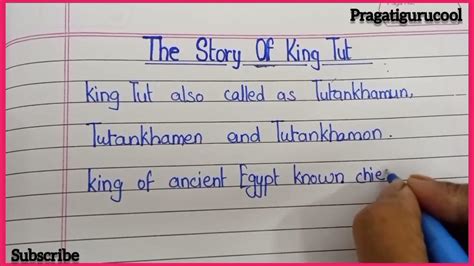 Pragatigurucool
The Story Of King Tut
king Tut also called as Tutankhamun,
Tutankhamen and Tutankhamon.
king of ancient Egypt known chie
Subscribe